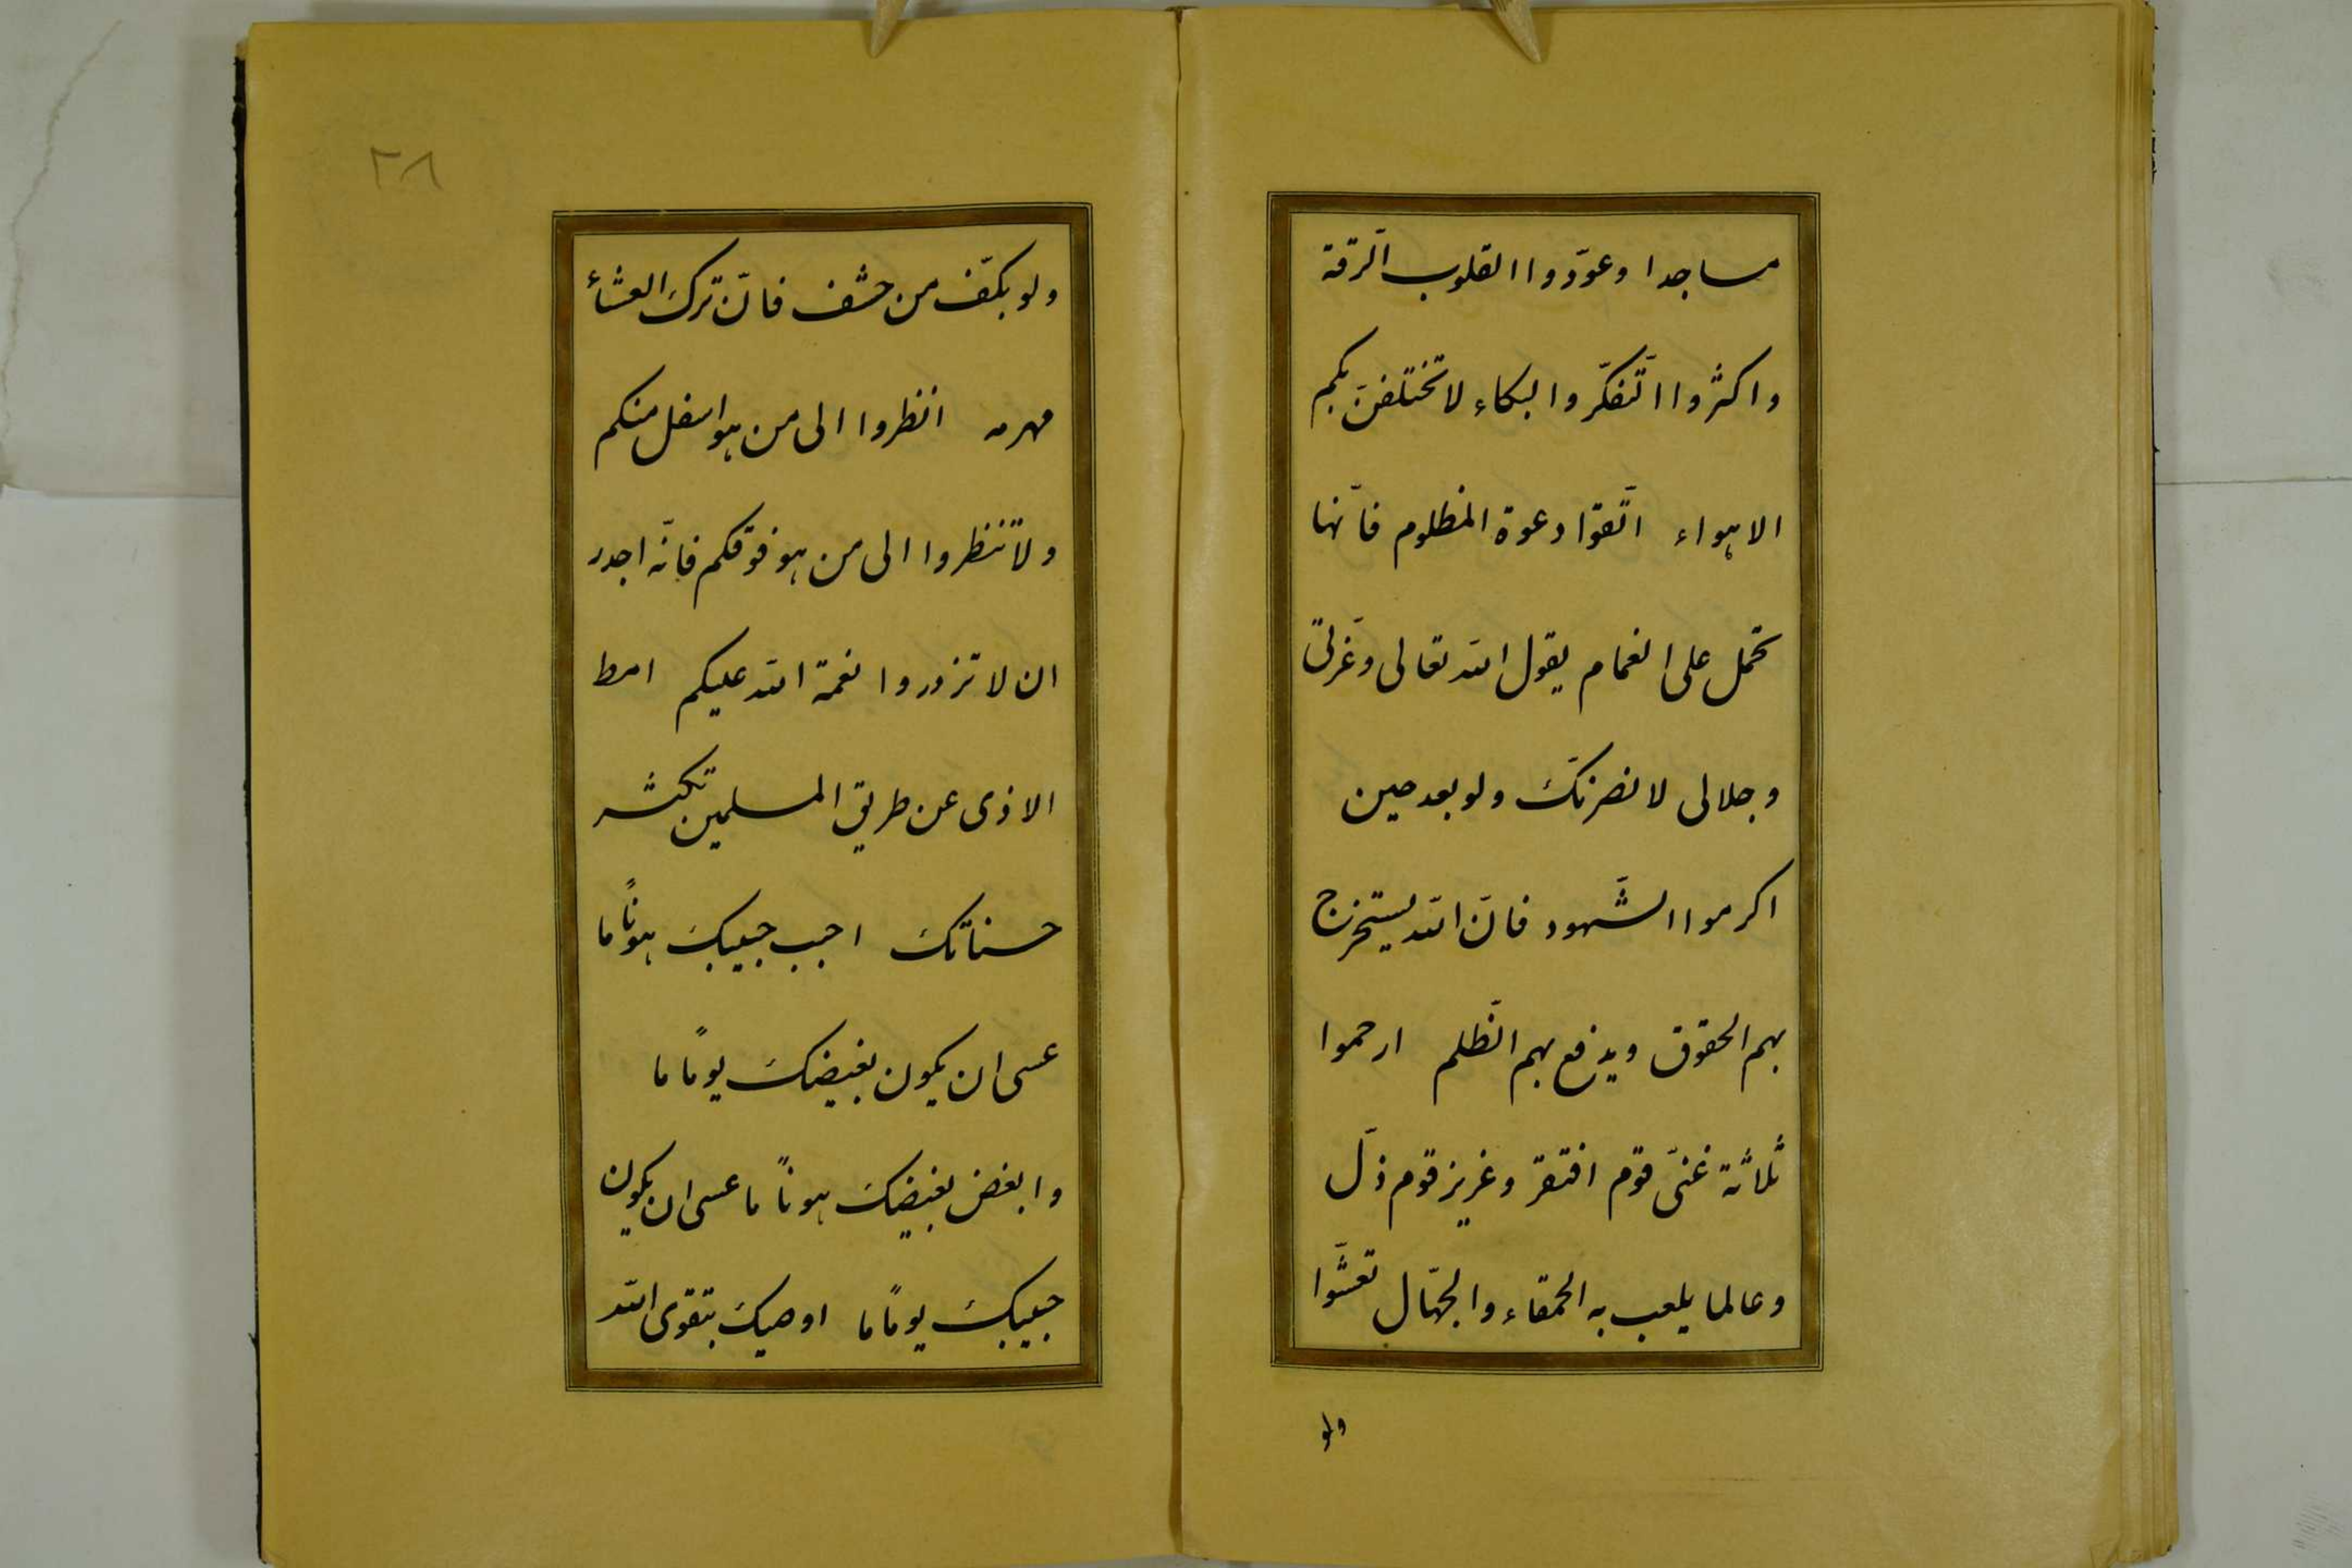 مساجدا وعوّدوا القلوب الرّقة
واكثروا التّفكّر والبكاء لا تختلفنّ بكم
الاهواء اتّقوا دعوة المظلوم فانّها
تحمل على الغمام يقول الله تعالى وعزّتى
وجلالى لانصرنّك ولو بعد حين
اكرموا الشّهود فانّ الله يستخرج
بهم الحقوق ويدفع بهم الظّلم ارحموا
ثلاثة غنىّ قوم افتقر وعزيز قوم ذلّ
وعالما يلعب به الحمقاء والجهّال تعشّوا
ولو
٢٨
ولو بكفّ من حشف فانّ ترك العشاء
مهرمه انظروا الى من هو اسفل منكم
ولا تنظروا الى من هو فوقكم فانّه اجدر
ان لا تزدروا نعمة الله عليكم امط
الاذى عن طريق المسلمين تكثر
حسناتك احبب حبيبك هونًا ما
عسى ان يكون بغيضك يومًا ما
وابغض بغيضك هونًا ما عسى ان يكون
حبيبك يومًا ما اوصيك بتقوى الله